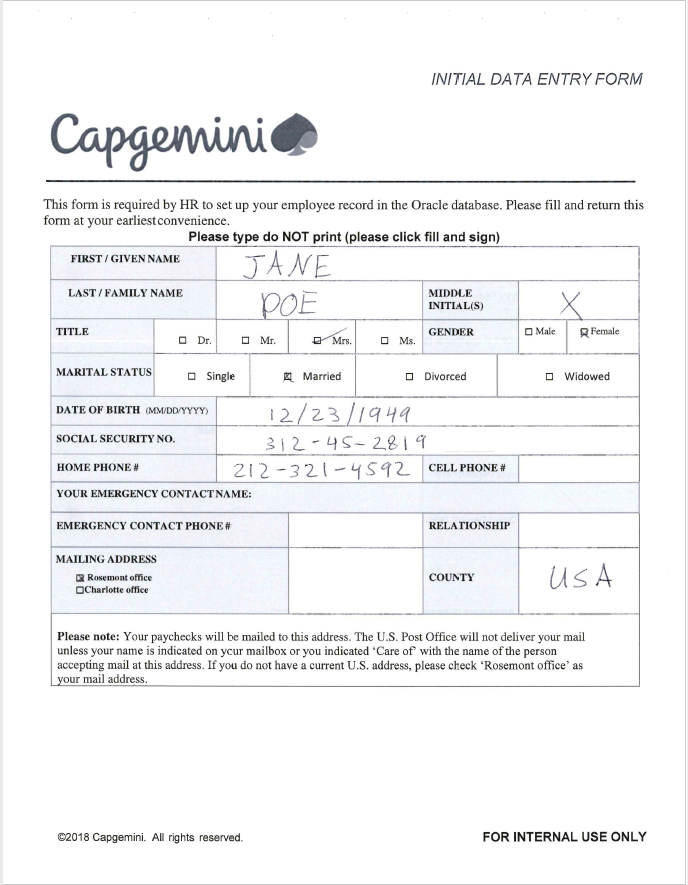 INITIAL DATA ENTRY FORM
Capgemini
This form is required by HR to set up your employee record in the Oracle database. Please fill and return this
form at your earliest convenience.
Please type do NOT print (please click fill and sign)
FIRST / GIVEN NAME JANE
LAST / FAMILY NAME POE MIDDLE INITIAL(S) X
TITLE Dr. Mr. Mrs. Ms. GENDER Male Female
MARITAL STATUS Single Married Divorced Widowed
DATE OF BIRTH (MM/DD/YYYY) 12/23/1949
SOCIAL SECURITY NO. 312-45-2819
HOME PHONE # 212-321-4592 CELL PHONE #
YOUR EMERGENCY CONTACT NAME:
EMERGENCY CONTACT PHONE # RELATIONSHIP
MAILING ADDRESS
Rosemont office
Charlotte office
COUNTY USA
Please note: Your paychecks will be mailed to this address. The U.S. Post Office will not deliver your mail
unless your name is indicated on your mailbox or you indicated ‘Care of’ with the name of the person
accepting mail at this address. If you do not have a current U.S. address, please check ‘Rosemont office’ as
your mail address.
©2018 Capgemini. All rights reserved. FOR INTERNAL USE ONLY